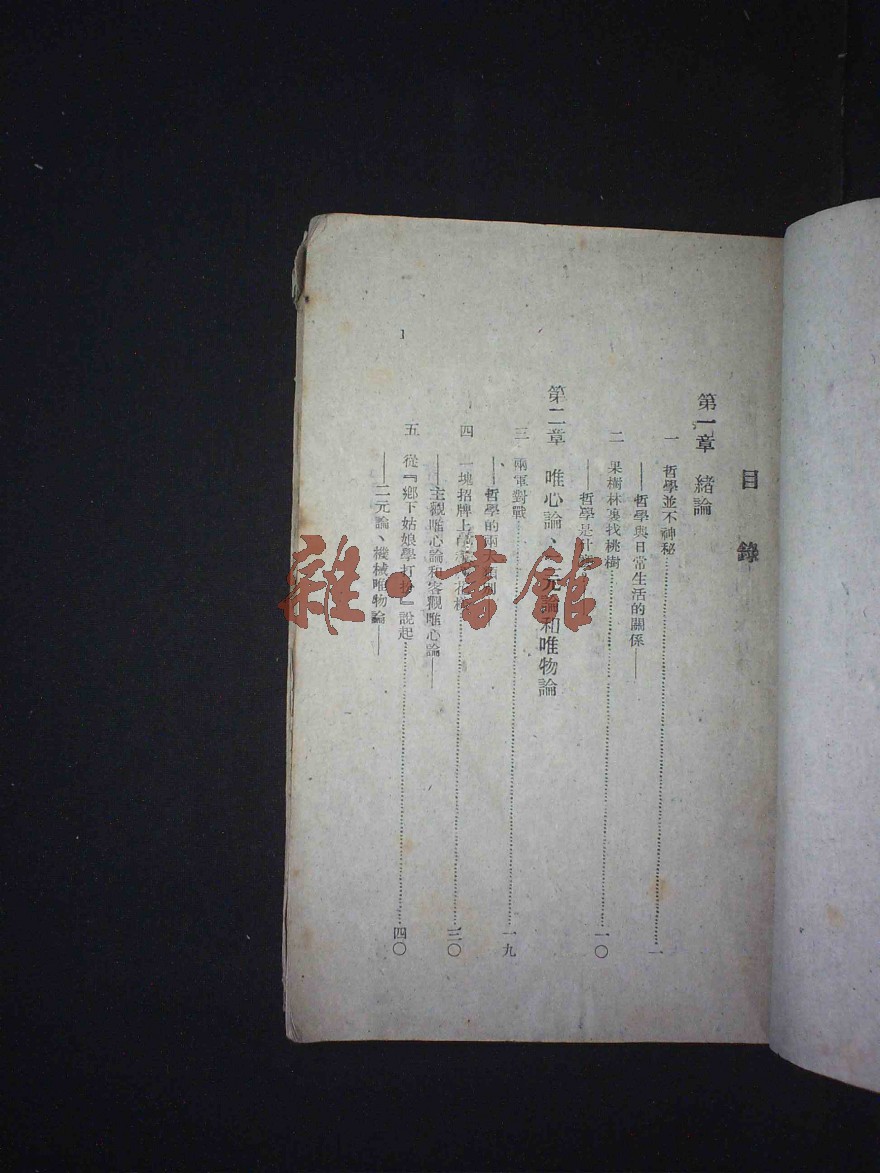 目錄
第一章 緒論
一 哲學並不神秘……一
——哲學與日常生活的關係——
二 果樹林裏找桃樹……一〇
——哲學是什
第二章 唯心論、 元論和唯物論
三 兩軍對戰……一九
——哲學的兩
四 一塊招牌上 花樣……三〇
——主觀唯心論和客觀唯心論——
五 從『鄉下姑娘學打扮』說起……四〇
——二元論、機械唯物論——
1
雜·書館